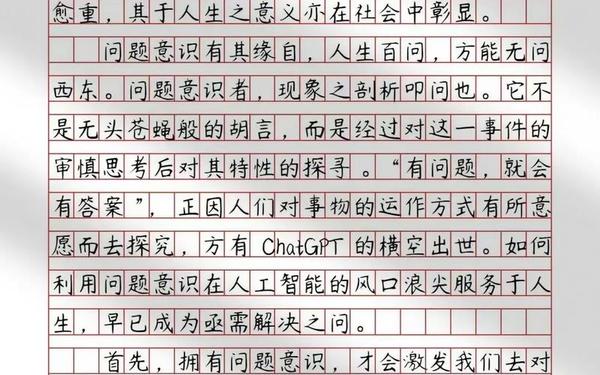 愈重，其于人生之意义亦在社会中彰显。
问题意识有其缘自，人生百问，方能无问
西东。问题意识者，现象之剖析叩问也。它不
是无头苍蝇般的胡言，而是经过对这一事件的
审慎思考后对其特性的探寻。“有问题，就会
有答案”，正因人们对事物的运作方式有所意
愿而去探究，方有 ChatGPT 的横空出世。如何
利用问题意识在人工智能的风口浪尖服务于人
生，早已成为亟需解决之问。
首先，拥有问题意识，才会激发我们去对